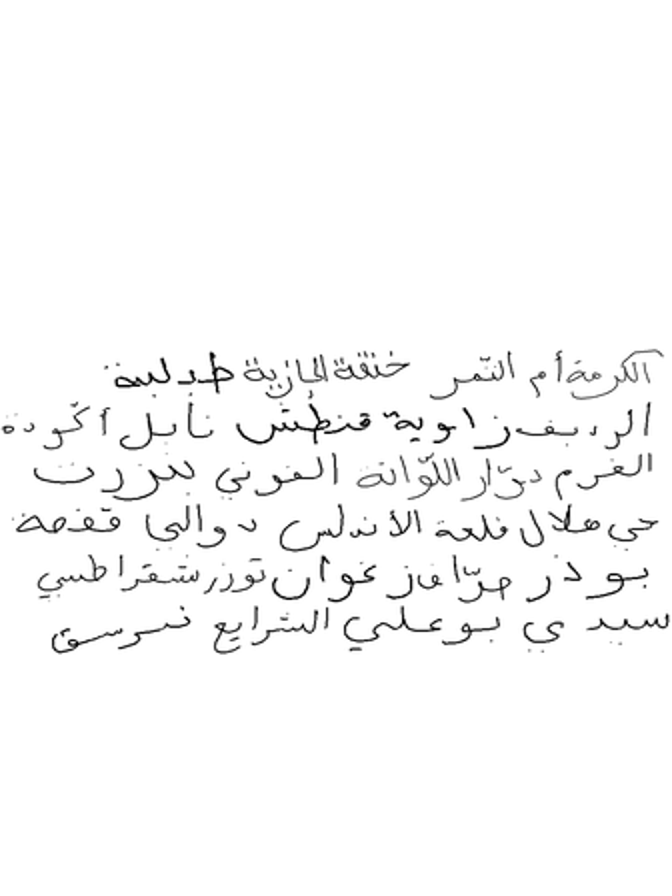 الكرمة أم التمر خنقة الجازية طبلبة
الرديف زاوية قنطش نابل أكودة
القرم دوّار اللوّاتة الغوني بنزرت
حي هلال قلعة الأندلس دوالي قفصة
بوذر جدّا فاز غوان توزر شقراطسي
سيدي بوعلي الشرايع تبرسق